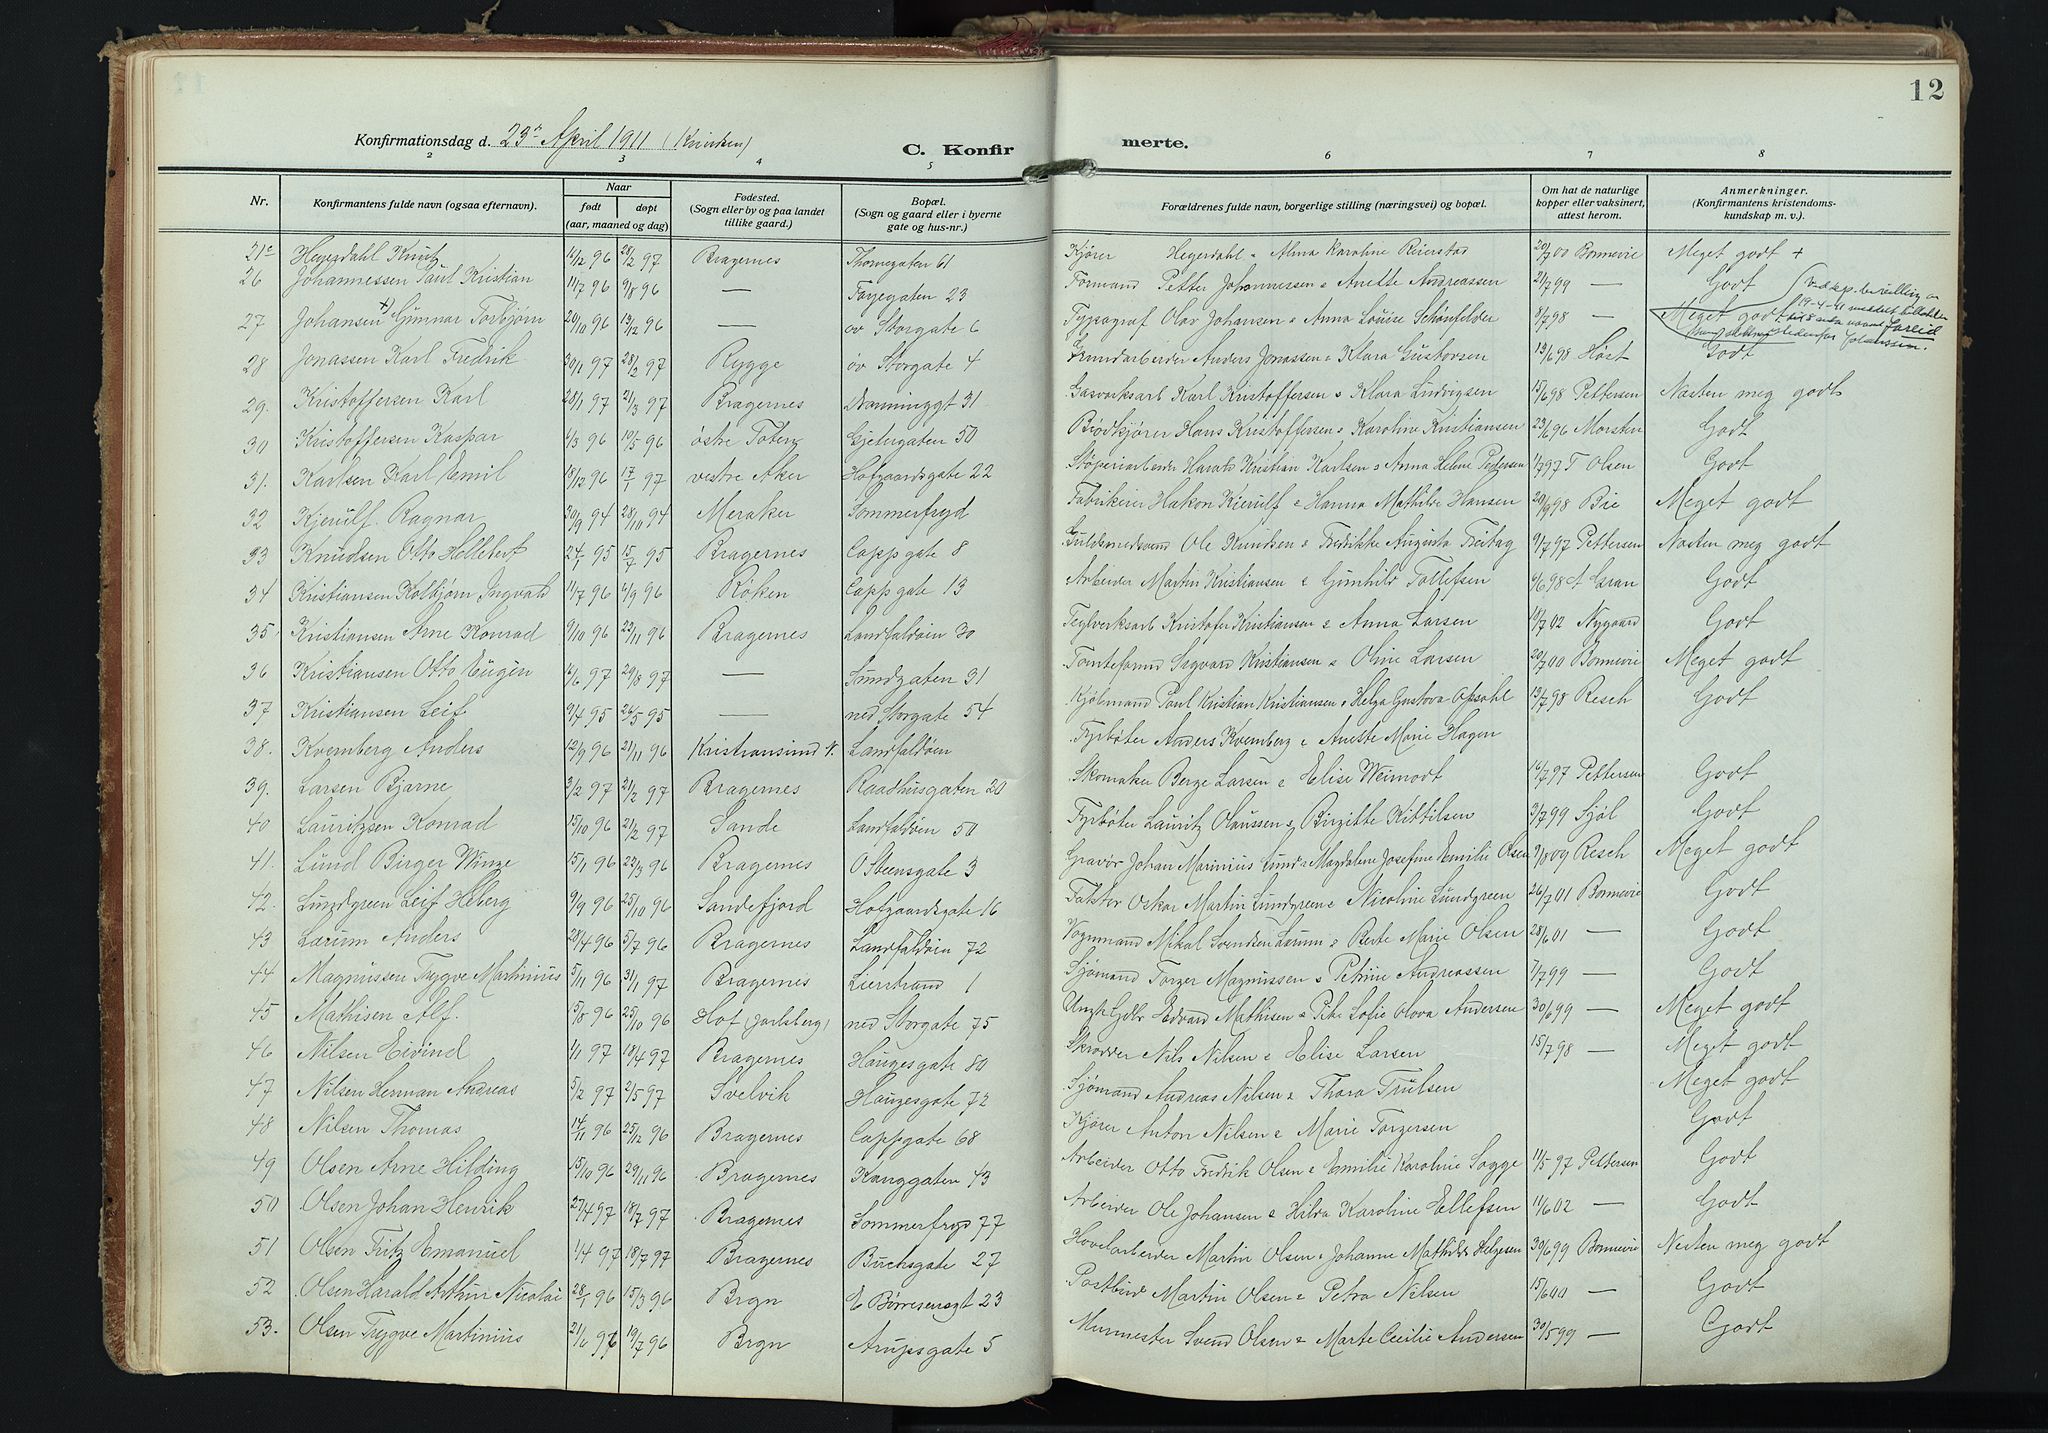 12
Konfirmationsdag d. 23de April 1911 (Kirken)
C. Konfirmerte.
2 3 4 5 6 7 8
Nr. | Konfirmantens fulde navn (ogsaa efternavn). | Naar født døpt (aar, maaned og dag) | Fødested. (Sogn eller by og paa landet tillike gaard.) | Bopæl. (Sogn og gaard eller i byerne gate og hus-nr.) | Forældrenes fulde navn, borgerlige stilling (næringsvei) og bopæl. | Om hat de naturlige kopper eller vaksinert, attest herom. | Anmerkninger. (Konfirmantens kristendomskundskap m. v.).
Hegerdahl Knut 28/2 97 Bragernes Thornegaten 61 Kjører Hegerdahl & Alma Karoline Reierstad 20/7 00 Bonnevie Meget godt +
26 Johannessen Paul Kristian 11/7 96 9/8 96 — Fogegaten 23 Formand Petter Johannessen & Anette Andreassen 21/7 99 — Godt
27 Johansen +) Gunnar Torbjørn 20/10 96 13/12 96 — øv Storgate 6 Typograf Olav Johansen & Anna Louise Schønfelder 8/7 98 — Meget godt
28 Jonassen Karl Fredrik 30/1 97 28/2 97 Rygge øv Storgate 4 Grundarbeider Anders Jonassen & Klara Gustavsen 13/6 98 Høst Godt
29. Kristoffersen Karl 28/1 97 21/3 97 Bragernes Dronninggt 31 Gasverksarb Karl Kristoffersen & Klara Ludvigsen 15/6 98 Pettersen Næsten meg godt
30 Kristoffersen Kaspar 4/3 96 10/5 96 østre Toten Gjetergaten 50 Brødkjører Hans Kristoffersen & Karoline Kristiansen 23/6 96 Morsten Godt
31. Karlsen Karl Emil 18/12 96 17/1 97 vestre Aker Hofgaardsgate 22 Støperiarbeider Harald Kristian Karlsen & Anna Helene Pedersen 1/7 97 T Olsen Godt
32 Kjerulf. Ragnar 30/9 94 28/10 94 Meraker Sommerfryd Fabrikeier Hakon Kierulf & Hanna Mathilde Hansen 20/9 98 Bie Meget godt
33 Knudsen Otto Hellebert 15/7 95 Bragernes Cappsgate 8 Guldsmedsvend Ole Knudsen & Fredrikke Augusta Freitag 9/7 97 Pettersen Næsten meg godt
34 Kristiansen Kolbjørn Ingvald 11/7 96 6/9 96 Røken Cappsgate 13 Arbeider Martin Kristiansen & Gunhild Tollefsen 6/6 98 Godt
35 Kristiansen Arne Konrad 9/10 96 22/11 96 Bragernes Landfaldøien 30 Teglverksarb Kristofer Kristiansen & Anna Larsen 18/7 02 Nygaard Godt
36 Kristiansen Otto Eugen 6/6 97 29/8 97 — Sundgaten 31 Tomteformd Sigvard Kristiansen & Oline Larsen 20/7 00 Bonnevie Meget godt
37 Kristiansen Leif 9/4 95 26/5 95 — ned Storgate 54 Kjølmand Paul Kristian Kristiansen & Helga Gustava Opsahl 13/7 98 Resch Godt
38. Kvernberg Anders 12/9 96 21/11 96 Kristiansund N. Landfaldøien Fyrbøter Anders Kvernberg & Anette Marie Hagen
39. Larsen Bjarne 3/2 97 21/2 97 Bragernes Raadhusgaten 20 Skomaker Berge Larsen & Elise Weimodt 16/7 97 Pettersen Godt
40 Lauritzsen Konrad 15/10 96 21/2 97 Sande Landfaldøien 50 Fyrbøter Lauritz Olaussen & Birgitte Kittilsen 3/7 99 Sjøl Godt
41. Lund Birger Winge 15/1 96 22/3 96 Bragernes O Steensgate 3 Gravør Johan Marinius Lund & Magdalene Josefine Emilie Olsen 7/8 09 Resch Meget godt
42. Lundgreen Leif Heberg 9/9 96 25/10 96 Sandefjord Hofgaardsgate 16 Oskar Martin Lundgreen & Nicoline Lundgreen 26/7 01 Bonnevie Godt
43 Lærum Anders 28/4 96 5/7 96 Bragernes Landfaldøien 72 Vognmand Mikal Svendsen Lærum & Berte Marie Olsen 28/6 01 — Godt
44 Magnussen Trygve Martinius 5/11 96 31/1 97 Bragernes Lierstrand 1 Sjømand Torger Magnussen & Petrine Andreassen 7/7 99 — Godt
45 Mathisen Alf. 15/8 96 25/10 96 Hof (Jarlsberg) ned Storgate 75 Edvard Mathisen & Pike Sofie Olava Andersen 30/6 99 — Meget godt
46 Nilsen Eivind 1/1 97 18/4 97 Bragernes Haugesgate 80 Skrædder Nils Nilsen & Elise Larsen 15/7 98 — Meget godt
47 Nilsen Herman Andreas 5/2 97 2/5 97 Svelvik Haugesgate 72 Sjømand Andreas Nilsen & Thora Trulsen Meget godt
48 Nilsen Thomas 14/11 96 25/12 96 Bragernes Cappsgate 68 Kjører Anton Nilsen & Marie Torgersen Godt
49 Olsen Arne Hilding 15/10 96 29/11 96 Bragernes Konggaten 43 Arbeider Otto Fredrik Olsen & Emilie Karoline Sogge 11/5 97 Pettersen Godt
50 Olsen Johan Henrik 27/4 97 18/7 97 Bragernes Sommerfryd 77 Arbeider Ole Johansen & Hilda Karoline Ellefsen 11/6 02 — Godt
51 Olsen Fritz Emanuel 1/4 97 18/7 97 Bragernes Buchsgate 27 Høvelarbeider Martin Olsen & Johanne Mathilde Helgesen 30/6 99 Bonnevie Nesten meg godt
52 Olsen Harald Arthur Nicolai 28/1 96 15/3 96 Brgn E Børresensgt 23 Postbud Martin Olsen & Petra Nilsen 15/6 00 — Godt
53. Olsen Trygve Martinius 21/6 96 19/7 96 Brgn Arupsgate 5 Murmester Svend Olsen & Marte Cecilie Andersen 30/5 99 — Godt